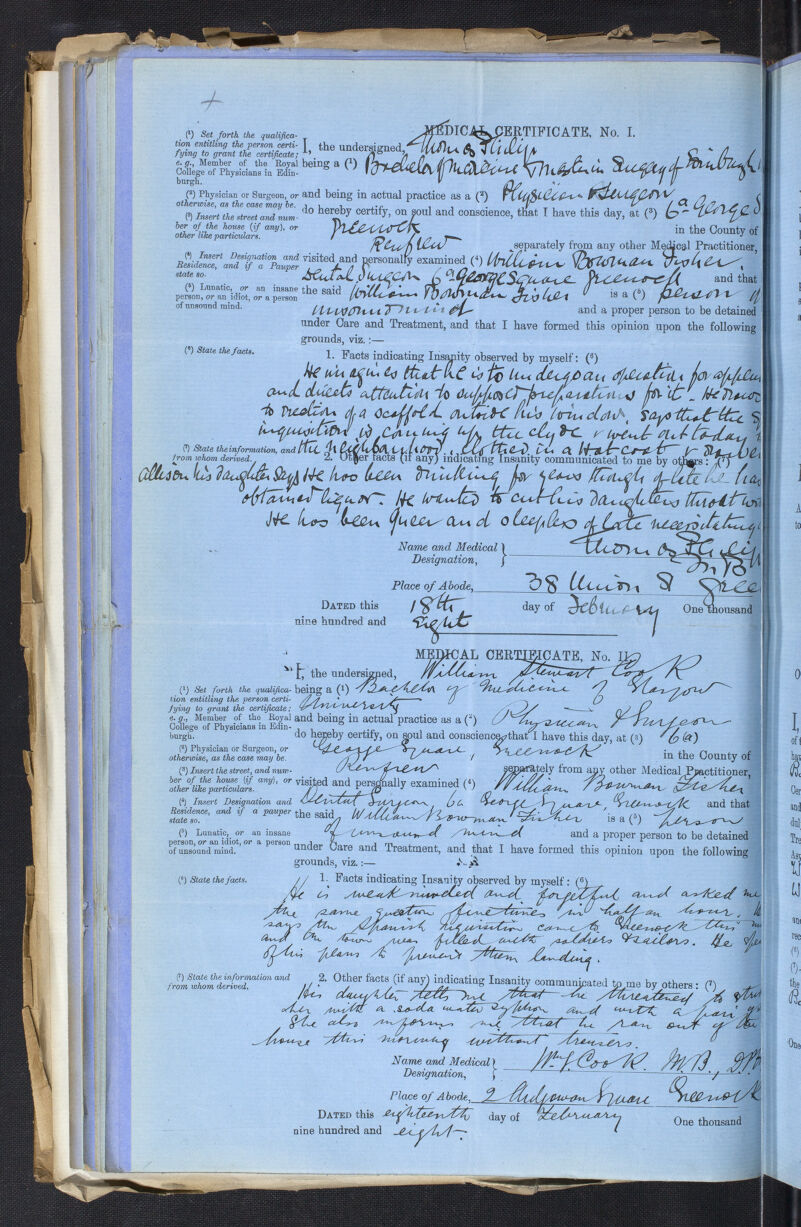 MEDICAL CERTIFICATE, No. I.
(1) Set forth the qualifica-
tion entitling the person certi-
fying to grant the certificate;
e.g., Member of the Royal
College of Physicians in Edin-
burgh.
(2) Physician or Surgeon, or
otherwise, as the case may be.
(3) Insert the street and num-
ber of the house (if any), or
other like particulars.
(4) Insert Designation and
Residence, and if a Pauper
state so.
(5) Lunatic, or an insane
person, or an idiot, or a person
of unsound mind.
I, the undersigned, Thomas Philip
being a (1) Bachelor of Medicine & Master in Surgery of Edinburgh
and being in actual practice as a (2) Physician & Surgeon
do hereby certify, on soul and conscience, that I have this day, at (3) 6a George S
Greenock in the County of
Renfrew separately from any other Medical Practitioner,
visited and personally examined (4) William Bowman Fisher,
Dental Surgeon 6a George Square Greenock and that
the said William Bowman Fisher is a (5) person of
unsound mind and a proper person to be detained
under Care and Treatment, and that I have formed this opinion upon the following
grounds, viz. :—
(6) State the facts.
1. Facts indicating Insanity observed by myself: (6)
He imagines that he is to undergo an operation for appen
and directs attention to supposed preparations for it. He
to erection of a scaffold outside his window. Says that the
inquisition is coming up the Clyde & went out today
the neighbourhood clothed in a Hat coat &
(7) State the information, and
from whom derived.
2. Other facts (if any) indicating Insanity communicated to me by others: (7)
Allison his daughter says He has been drinking for years though of late he has
obtained liquor. He wanted to cut his daughters throat
He has been queer and sleepless of late necessitating
Name and Medical
Designation,
Thomas Philip
M B
Place of Abode, 38 Union St Gree
DATED this 18th day of February One thousand
nine hundred and Eight
MEDICAL CERTIFICATE, No. II.
(1) Set forth the qualifica-
tion entitling the person certi-
fying to grant the certificate;
e.g., Member of the Royal
College of Physicians in Edin-
burgh.
(2) Physician or Surgeon, or
otherwise, as the case may be.
(3) Insert the street, and num-
ber of the house (if any), or
other like particulars.
(4) Insert Designation and
Residence, and if a pauper
state so.
(5) Lunatic, or an insane
person, or an idiot, or a person
of unsound mind.
I, the undersigned, William Stewart Cook
being a (1) Bachelor of Medicine of Glasgow
University
and being in actual practice as a (2) Physician & Surgeon
do hereby certify, on soul and conscience, that I have this day, at (3) 6a)
George Square, Greenock in the County of
Renfrew separately from any other Medical Practitioner,
visited and personally examined (4) William Bowman Fisher
Dental Surgeon, 6a George Square, Greenock and that
the said William Bowman Fisher is a (5) person
of unsound mind and a proper person to be detained
under Care and Treatment, and that I have formed this opinion upon the following
grounds, viz. :—
(6) State the facts.
1. Facts indicating Insanity observed by myself: (6)
He is weak minded and forgetful and asked me
the same question five times in half an hour. H
says the Spanish Inquisition came to Greenock this
and the town was filled with soldiers & sailors. He
of his plans to prevent them landing.
(7) State the information and
from whom derived.
2. Other facts (if any) indicating Insanity communicated to me by others: (7)
His daughter tells me that he threatened to
her with a soda water syphon and with a pair of
She also informs me that he ran out of the
house this morning without trousers.
Name and Medical
Designation,
Wm S. Cook. M.B., D.P.
Place of Abode, 2 Ardgowan Square Greenock
DATED this eighteenth day of February One thousand
nine hundred and eight.